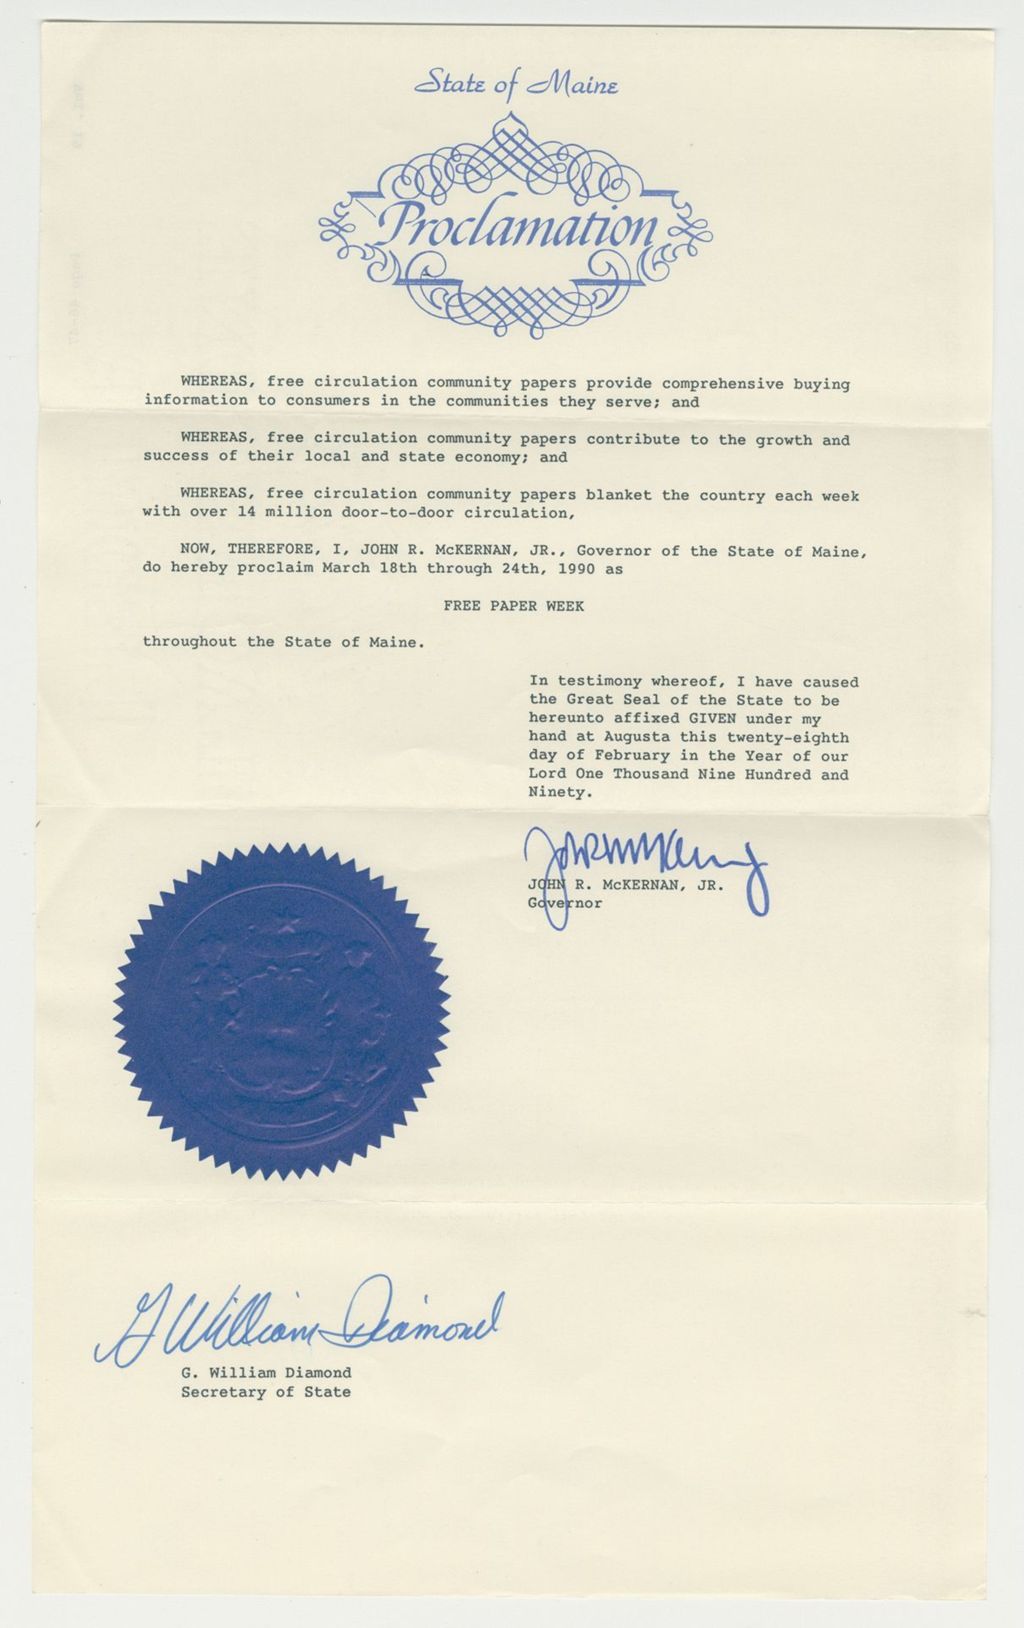 State of Maine
Proclamation
WHEREAS, free circulation community papers provide comprehensive buying
information to consumers in the communities they serve; and
WHEREAS, free circulation community papers contribute to the growth and
success of their local and state economy; and
WHEREAS, free circulation community papers blanket the country each week
with over 14 million door-to-door circulation,
NOW, THEREFORE, I, JOHN R. McKERNAN, JR., Governor of the State of Maine,
do hereby proclaim March 18th through 24th, 1990 as
FREE PAPER WEEK
throughout the State of Maine.
In testimony whereof, I have caused
the Great Seal of the State to be
hereunto affixed GIVEN under my
hand at Augusta this twenty-eighth
day of February in the Year of our
Lord One Thousand Nine Hundred and
Ninety.
JOHN R. McKERNAN, JR.
Governor
G William Diamond
G. William Diamond
Secretary of State